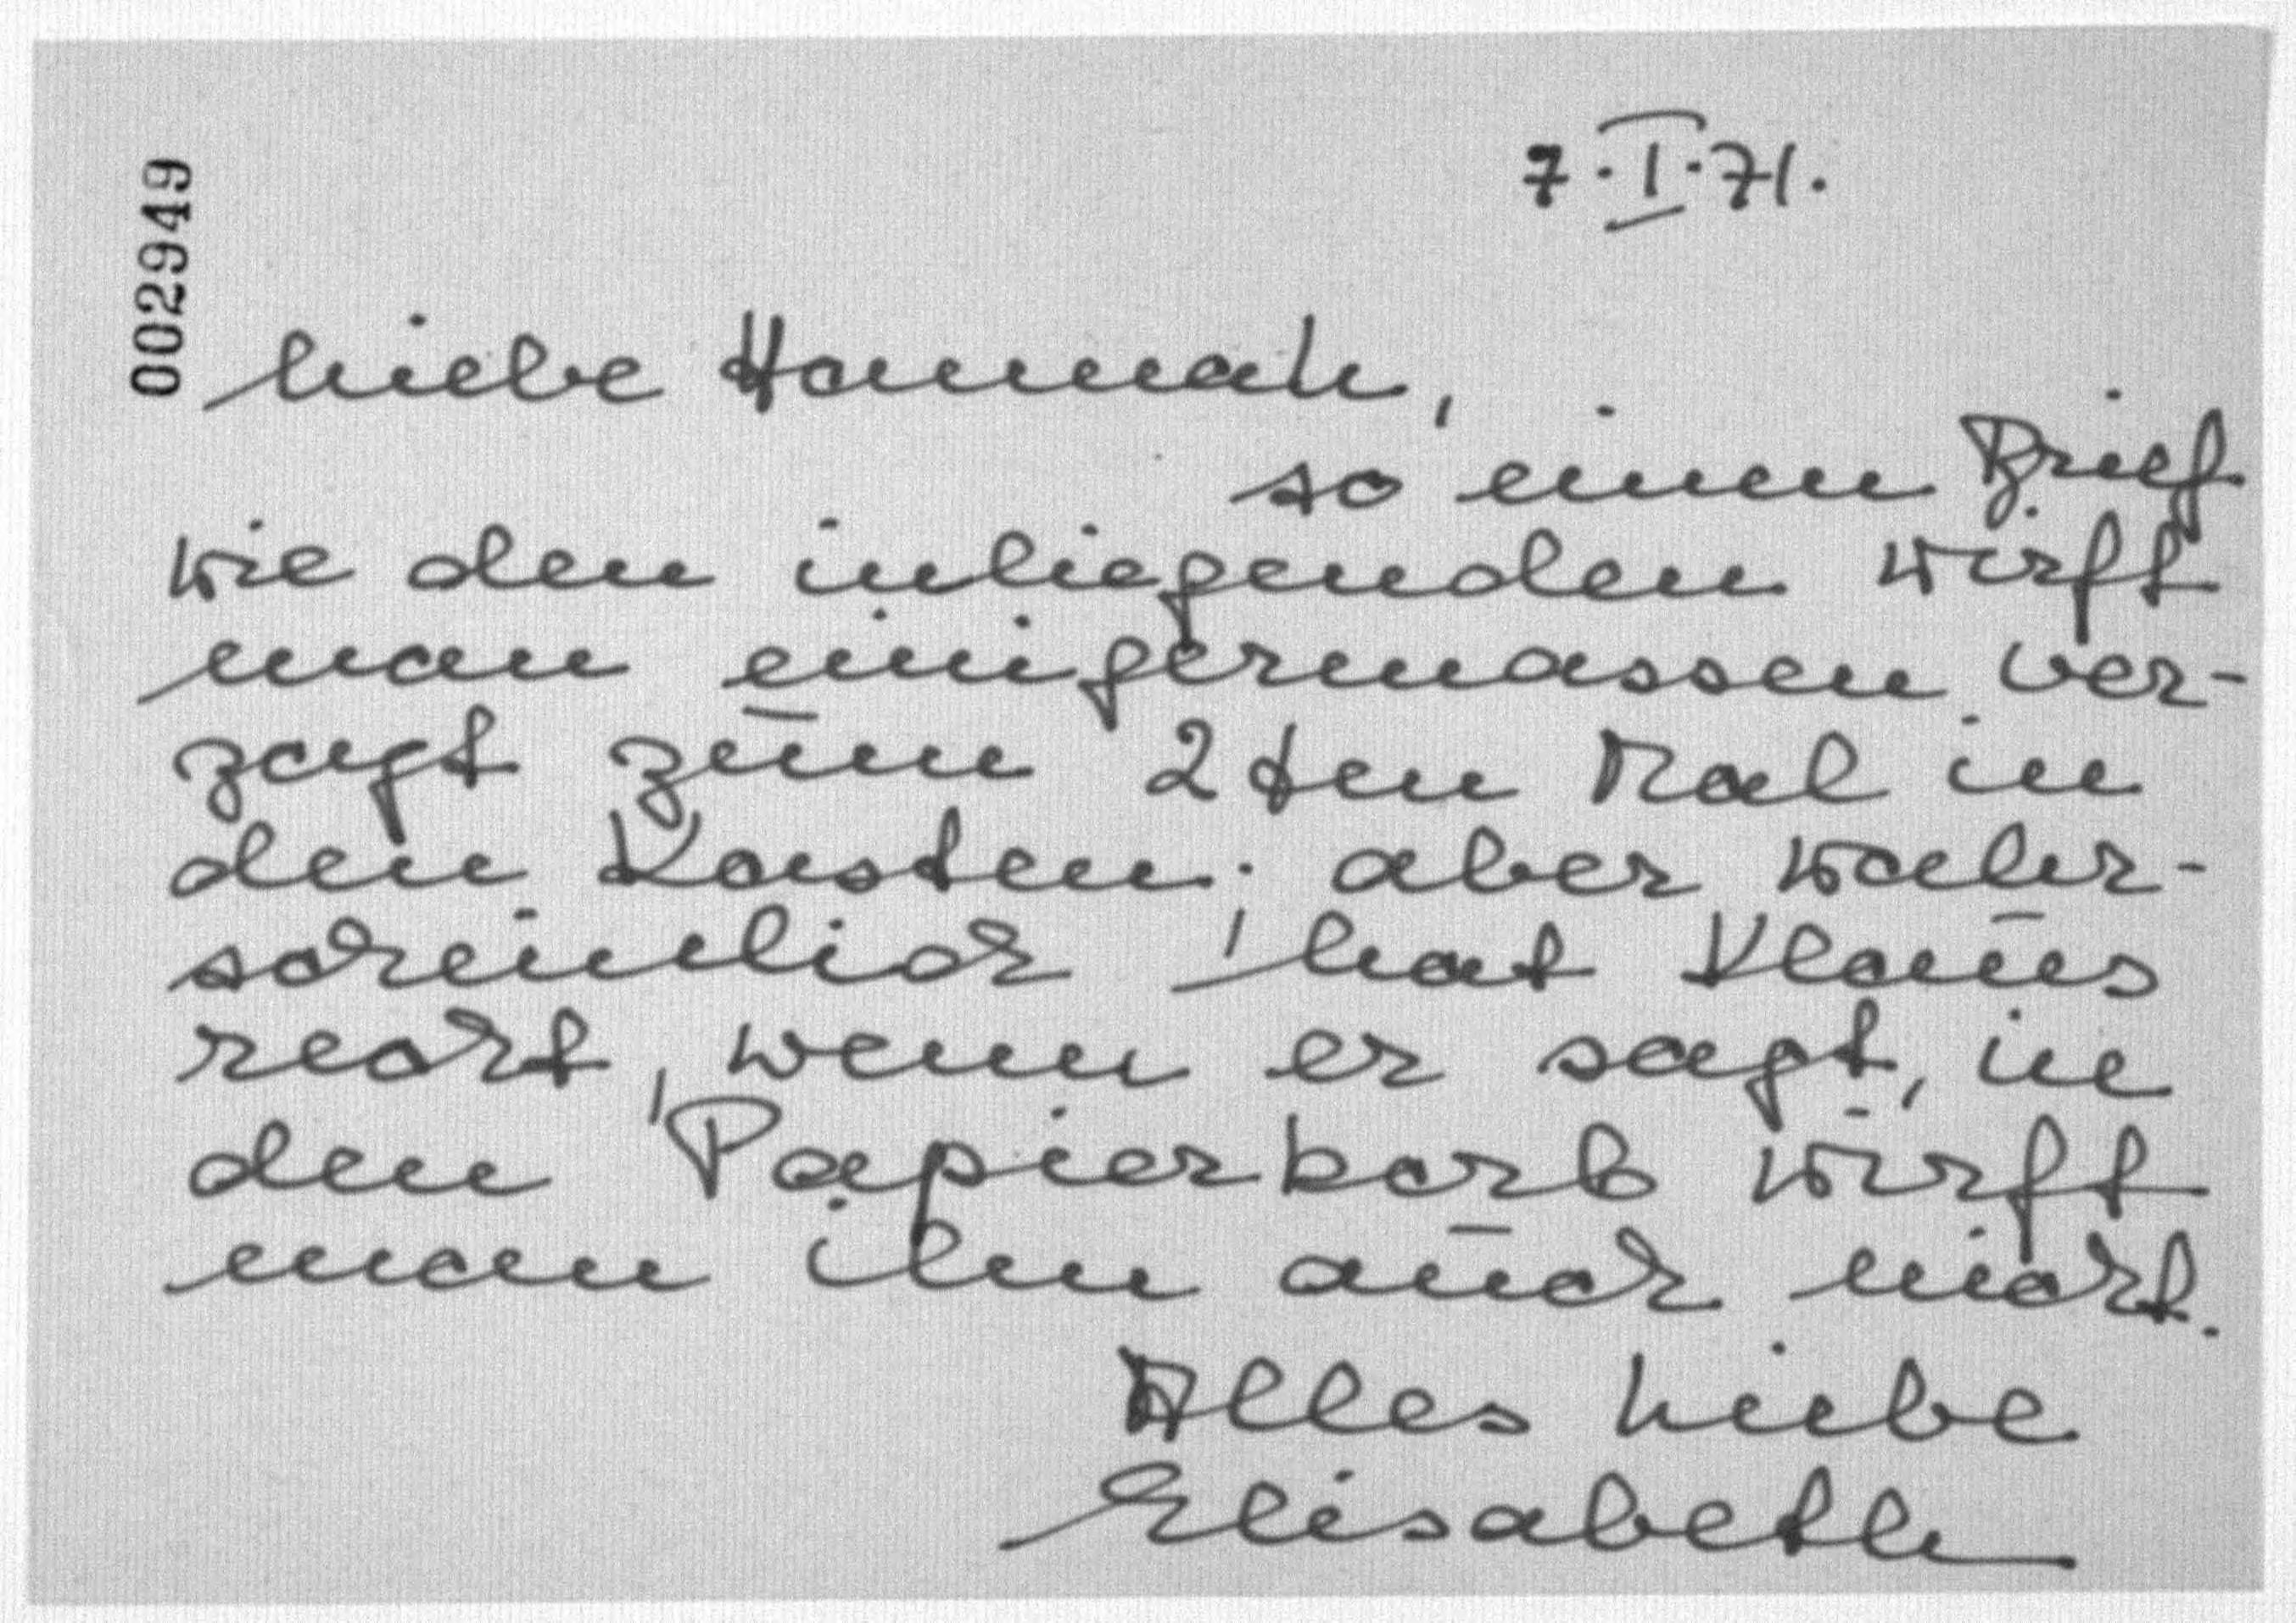 002949
7.I.71.
Liebe Hannah,
so einen Brief
wie den inliegenden wirft
man einigermassen ver-
zagt zum 2ten Mal in
den Kasten; aber wahr-
scheinlich hat Klaus
recht, wenn er sagt, in
den Papierkorb wirft
man ihn auch nicht.
Alles Liebe
Elisabeth